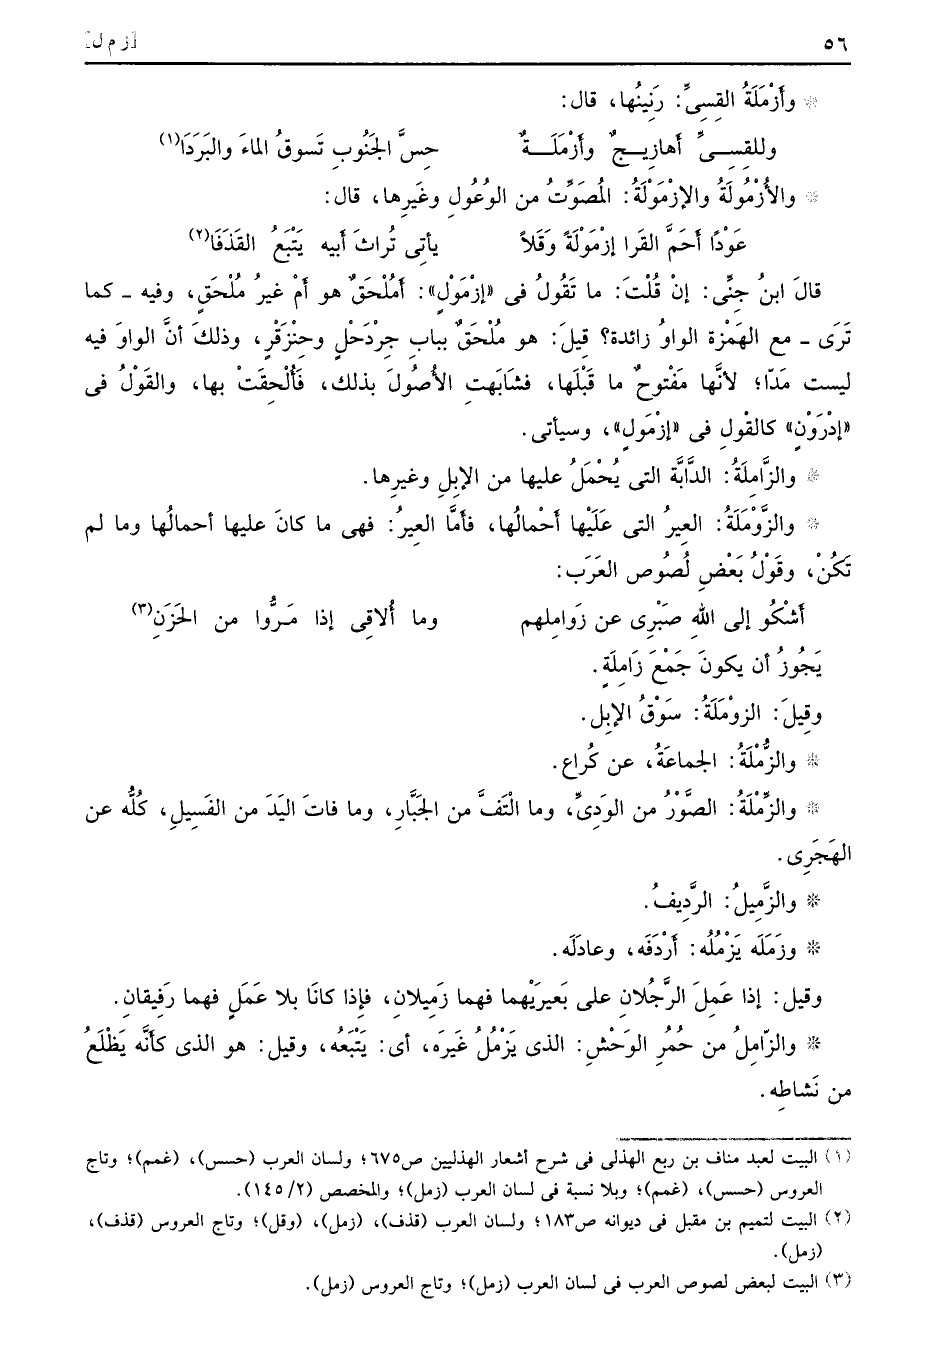 ٥٦ [ز م ل]
* وأَزْمَلَةُ القِسِىِّ: رَنِينُها، قال:
وللقِســىِّ أَهازِيــجٌ وأَزْمَلَــةٌ حِسَّ الجَنُوبِ تَسوقُ الماءَ والبَرَدَا(١)
* والأُزْمُولَةُ والإِزْمَوْلَةُ: المُصَوِّتُ من الوُعُولِ وغَيرِها، قال:
عَوْدًا أَحَمَّ القَرا إِزْمَوْلَةً وَقَلاً يأتى تُراثَ أَبيه يَتْبَعُ القَذَفَا(٢)
قالَ ابنُ جِنِّى: إنْ قُلْتَ: ما تَقُولُ فى «إِزْمَوْلٍ»: أَمُلْحَقٌ هو أَمْ غيرُ مُلْحَقٍ، وفيه ـ كما
تَرَى ـ مع الهَمْزة الواوُ زائدة؟ قيلَ: هو مُلْحَقٌ ببابِ جِرْدَحْلٍ وحِنْزَقْرٍ، وذلكَ أنَّ الواوَ فيه
ليست مَدّا؛ لأنَّها مَفْتوحٌ ما قَبْلَها، فشابَهتِ الأُصُولَ بذلك، فَأُلْحِقَتْ بها، والقَوْلُ فى
«إِدْرَوْنٍ» كالقْولِ فى «إِزْمَولٍ»، وسيأتى.
* والزَّامِلَةُ: الدَّابَّة التى يُحْمَلُ عليها من الإبِلِ وغيرِها.
* والزَّوْمَلَةُ: العِيرُ التى عَلَيْها أَحْمالُها، فأمَّا العيرُ: فهى ما كانَ عليها أحمالُها وما لم
تَكُنْ، وقَوْلُ بَعْضِ لُصُوص العَرَب:
أَشْكُو إلى اللهِ صَبْرِى عن زَوامِلِهم وما أُلاقِى إذا مَـرُّوا من الحَزَنِ(٣)
يَجُوزُ أن يكونَ جَمْعَ زَامِلَةٍ.
وقِيلَ: الزوْمَلَةُ: سَوْقُ الإبِل.
* والزُّمْلَةُ: الجماعَةُ، عن كُراع.
* والزِّمْلَةُ: الصَّوْرُ من الوَدِىِّ، وما الْتَفَّ من الجَبَّارِ، وما فاتَ اليَدَ من الفَسِيلِ، كُلُّه عن
الهَجَرِى.
* والزَّمِيلُ: الرَّدِيفُ.
* وزَمَلَه يَزْمُلُه: أَرْدَفَه، وعادَلَه.
وقيل: إذا عَمِلَ الرَّجُلانِ على بَعِيرَيْهِما فهما زَمِيلانِ، فإذا كانَا بلا عَمَلٍ فهما رَفِيقان.
* والزّامِلُ من حُمُرِ الوَحْشِ: الذى يَزْمُلُ غَيرَه، أى: يَتْبَعُه، وقيل: هو الذى كأنَّه يَظْلَعُ
من نَشاطِه.
(١) البيت لعبد مناف بن ربع الهذلى فى شرح أشعار الهذليين ص٦٧٥؛ ولسان العرب (حسس)، (غمم)؛ وتاج
العروس (حسس)، (غمم)؛ وبلا نسبة فى لسان العرب (زمل)؛ والمخصص (٢/ ١٤٥).
(٢) البيت لتميم بن مقبل فى ديوانه ص١٨٣؛ ولسان العرب (قذف)، (زمل)، (وقل)؛ وتاج العروس (قذف)،
(زمل).
(٣) البيت لبعض لصوص العرب فى لسان العرب (زمل)؛ وتاج العروس (زمل).